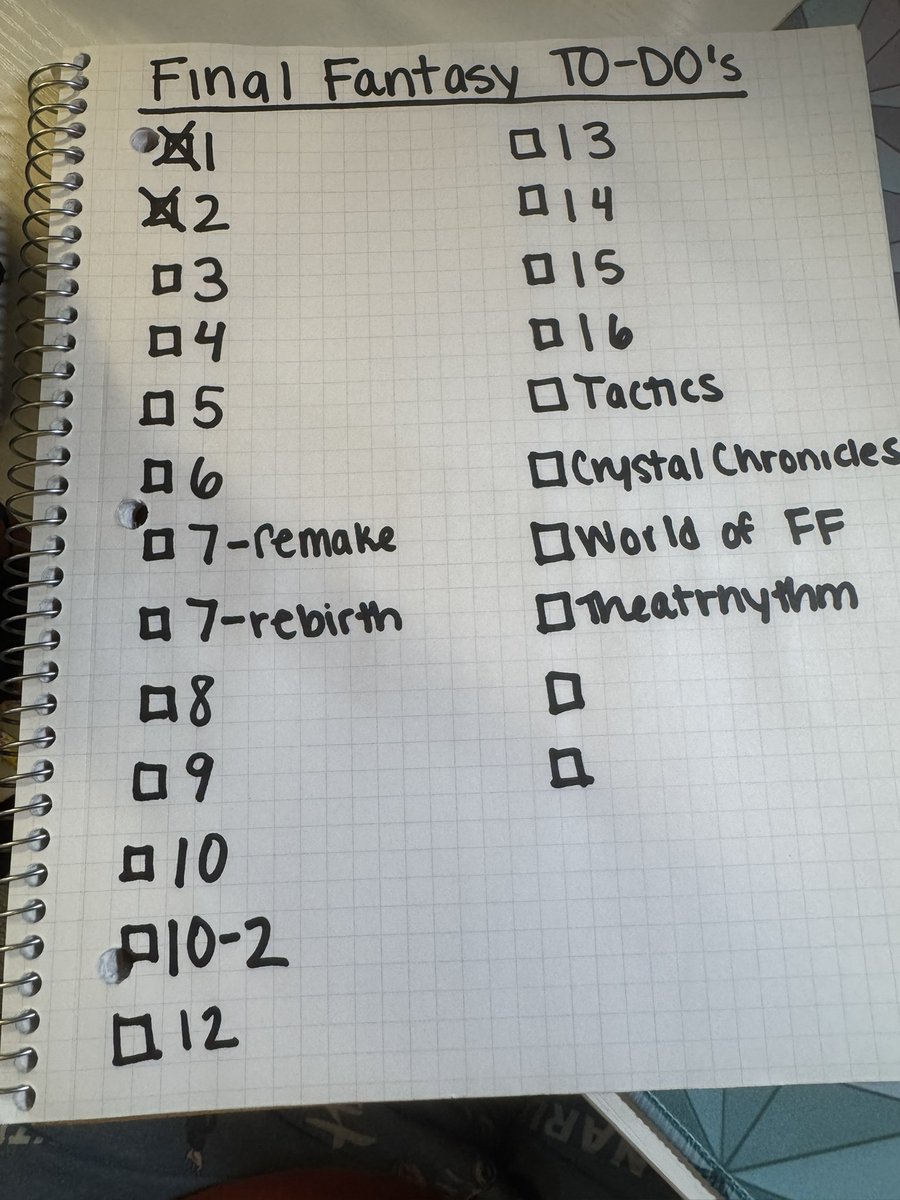 Final Fantasy TO-DO's
1
2
3
4
5
6
7-remake
7-rebirth
8
9
10
10-2
12
13
14
15
16
Tactics
Crystal Chronicles
World of FF
Theatrhythm